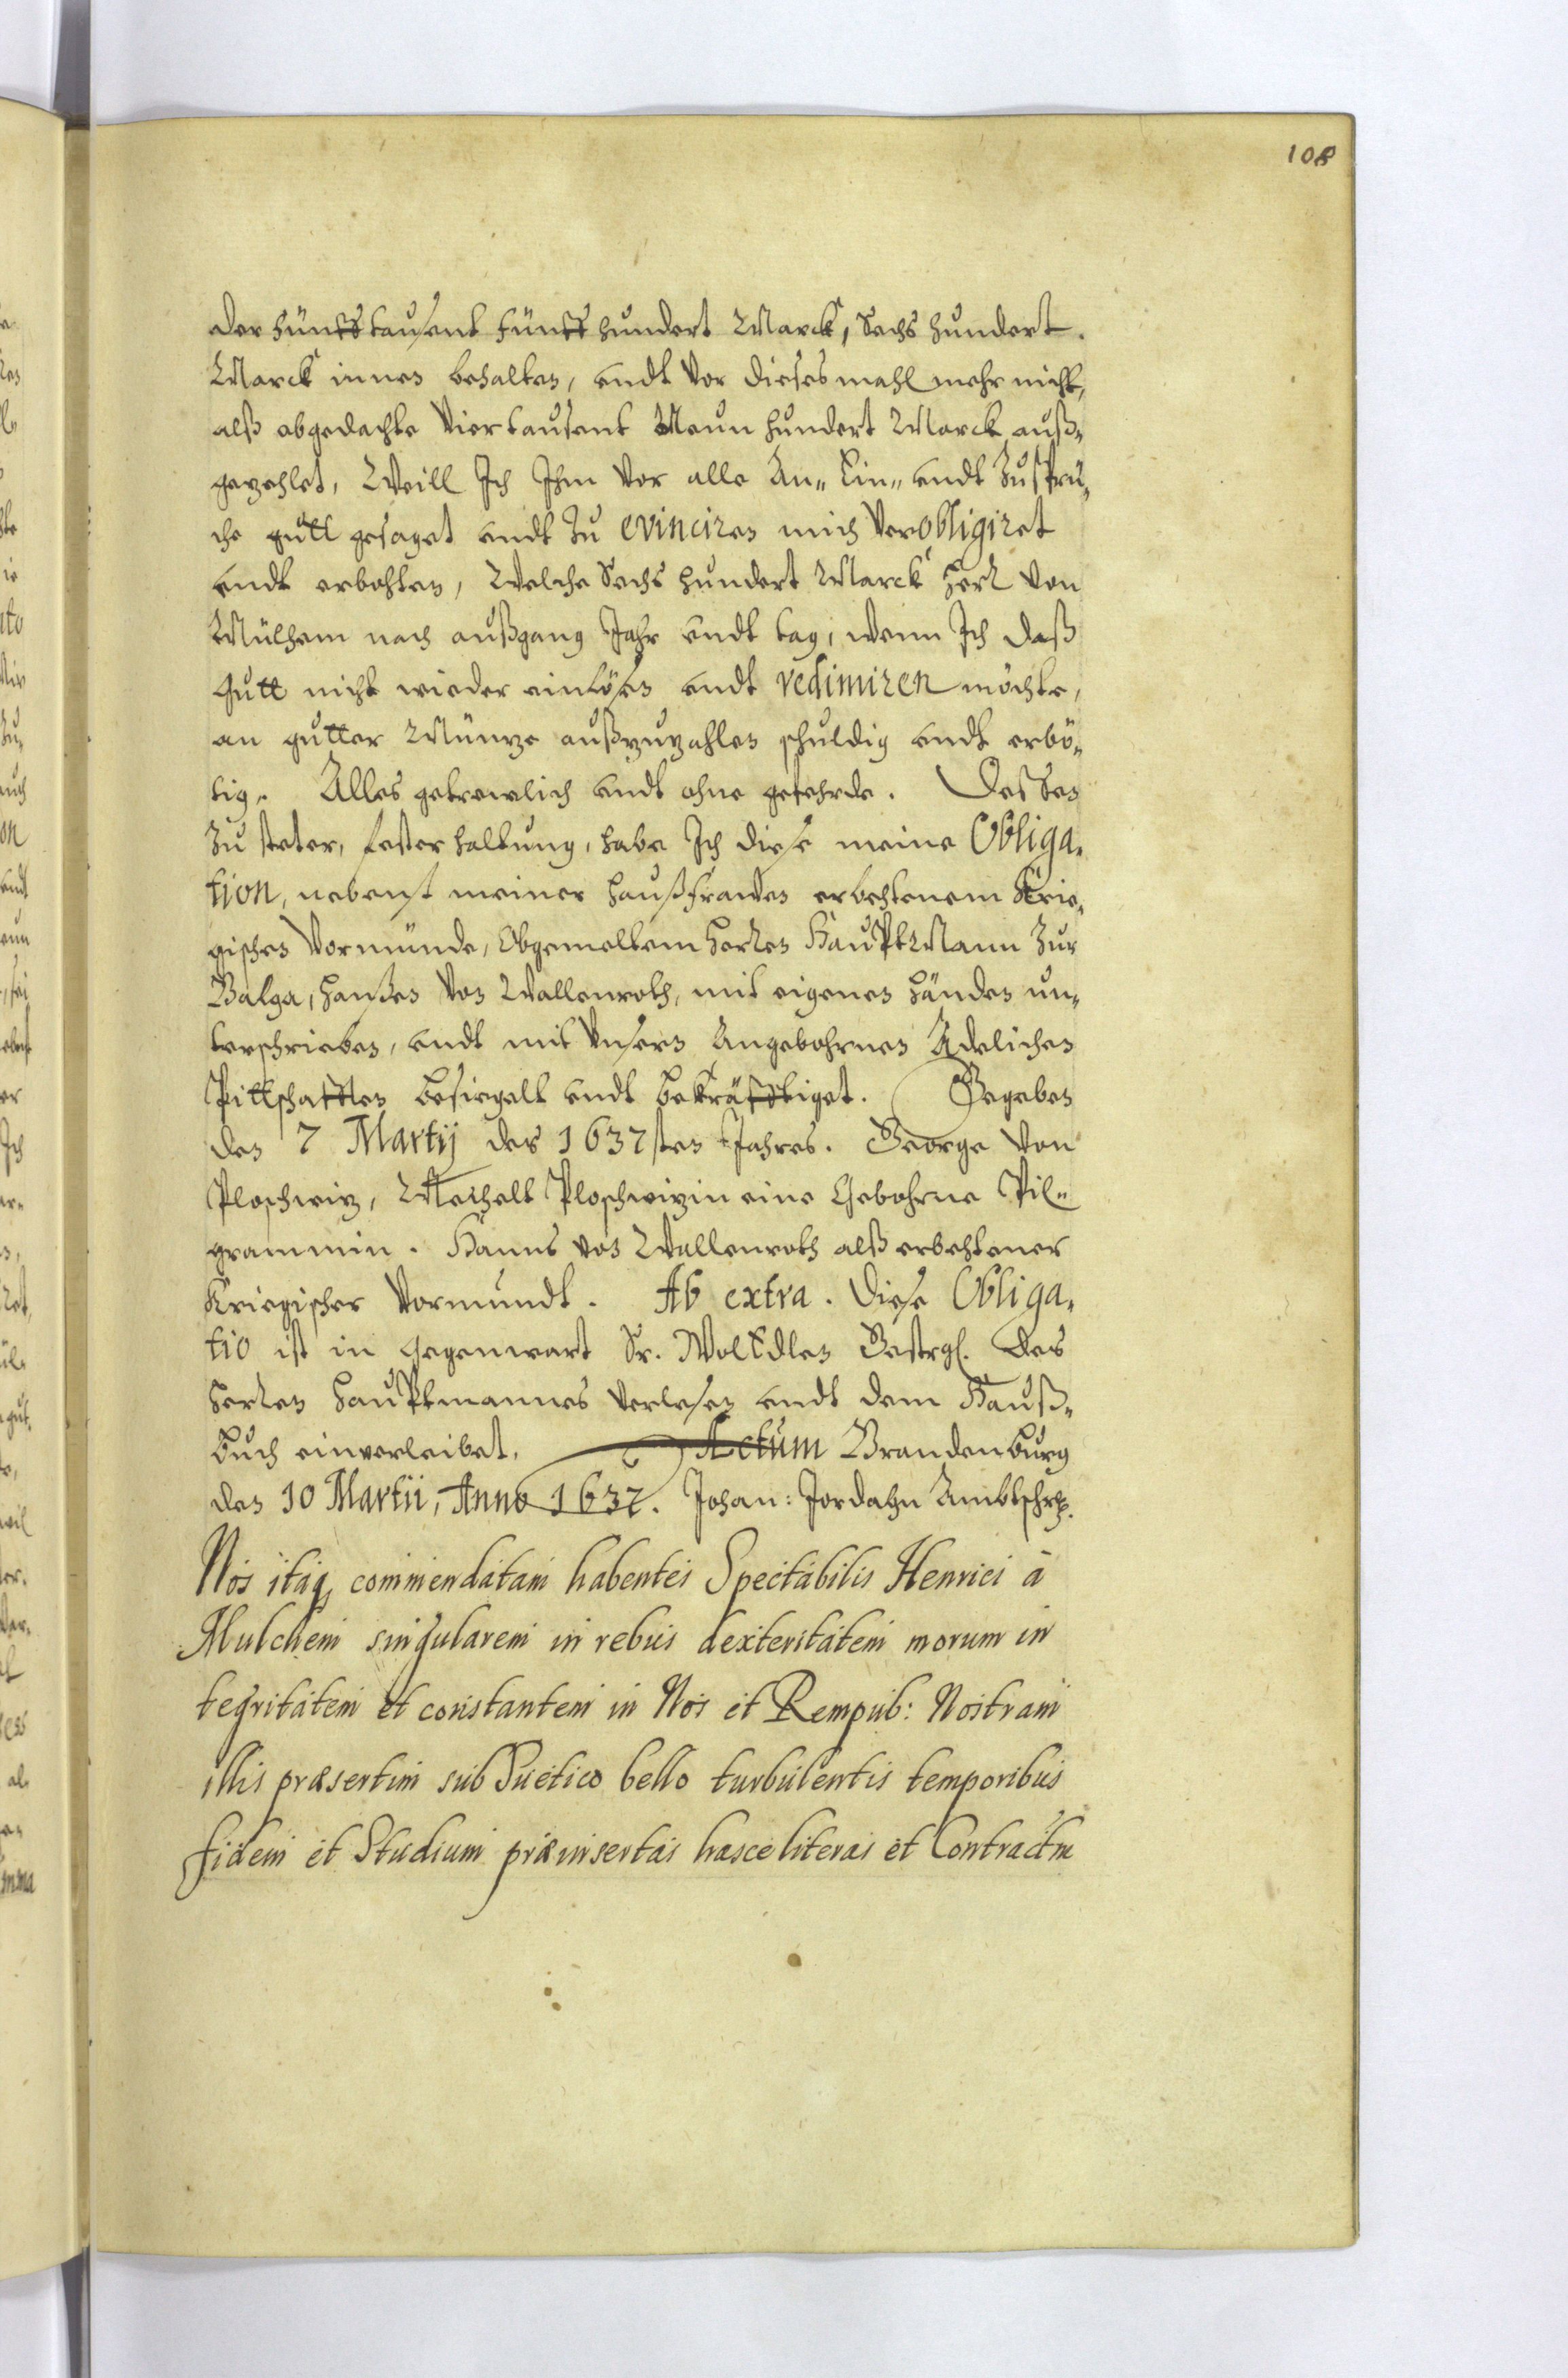 108
der Fünfftausent Fünffhundert Marck, Sechs hundert
Marck innen behalten, undt vor dieses mahl mehr nicht,
alß obgedachte Viertausent Neun hundert Marck auß-
gezehlet, Weill Ich Ihm vor alle An- Ein- undt Zusprü-
che gutt gesaget undt zu evinciren mich verobligiret
undt erbohten, Welche Sechs hundert Marck Herr von
Mülhem nach außgang Jahr undt tag, wenn Ich daß
Gutt nicht wieder einlösen undt redimiren möchte,
an gutter Müntze außzuzahlen schuldig undt erbö-
tig. Alles getrewlich undt ohne gefehrde. Dessen
zu steter, fester haltung, habe Ich diese meine Obliga-
tion, nebenst meiner Haußfrawen erbehtenem Krie-
gischen Vormünde, Obgemeltem Herren HauptMann zur
Balga, Hanßen von Wallenroth, mit eigenen Händen un-
terschrieben, undt mit Unsern Angebohrnen Adelichen
Pittschafften besiegelt undt bekräfftiget. Gegeben
den 7 Martij des 1637sten Jahres. George von
Ploschwiz, Mechelt Ploschwizin eine Gebohrne Pil-
grammin. Hanns von Wallenroth alß erbehtener
Kriegischer Vormundt. Ab extra. Diese Obliga-
tio ist in gegenwart Sr. WolEdlen Gestrgl. des
Herren Hauptmannes verlesen undt dem Hauß-
buch einverleibet. Actum Brandenburg
den 10 Martii, Anno 1637. Johan: Jordahn Ambtschr.
Nos itaq, commendatam habentes Spectabilis Henrici à
Mulchem singularem in rebus dexteritatem morum in
tegritatem et constantem in Nos et Rempub: Nostram
illis præsertim sub Suetico bello turbulentis temporibus
fidem et Studium præinsertas hasce literas et Contractm